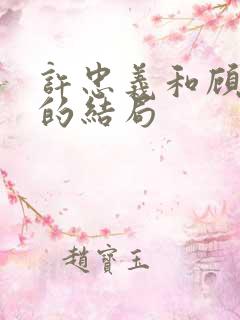 許忠義和顧
的結局
趙寶玉